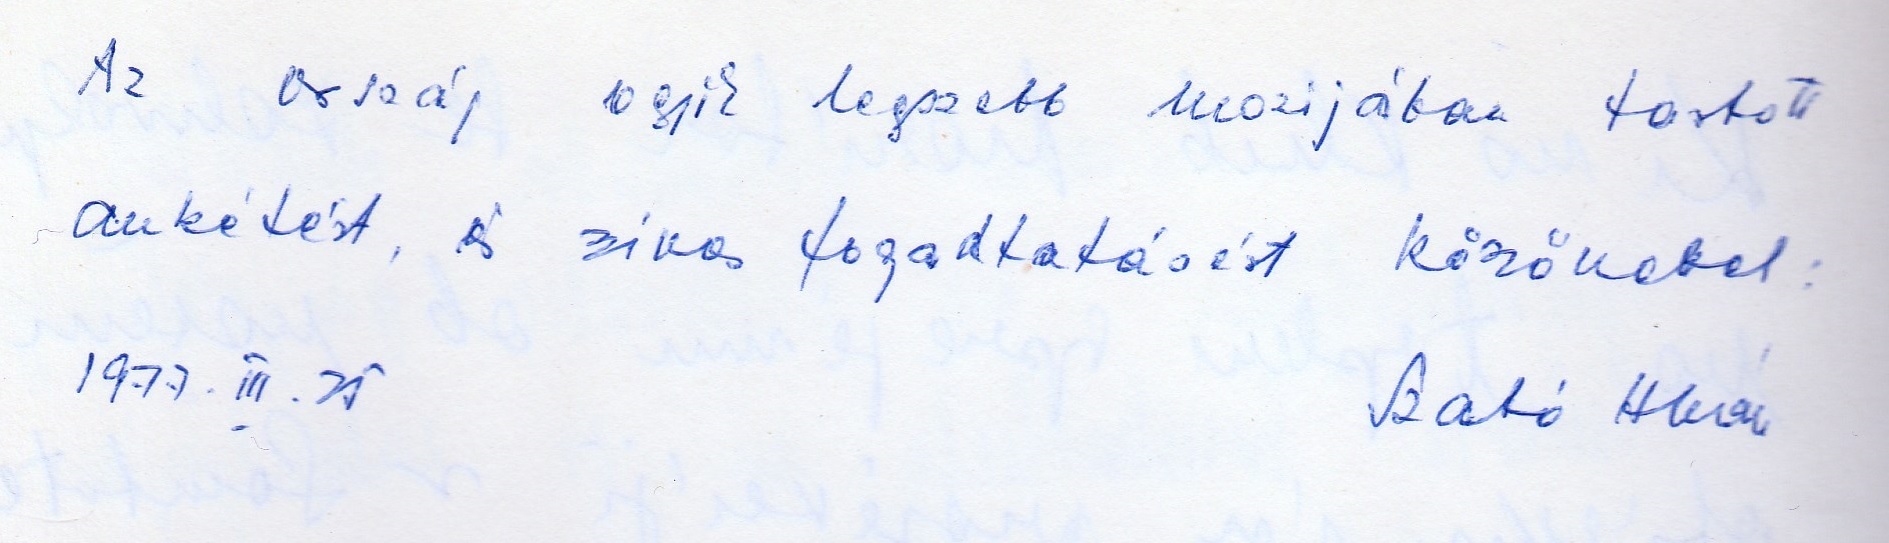 Az ország egyik legszebb mozijában tartott
ankétért, és szives fogadtatásért köszönettel:
1977. III. 25
Szabó István